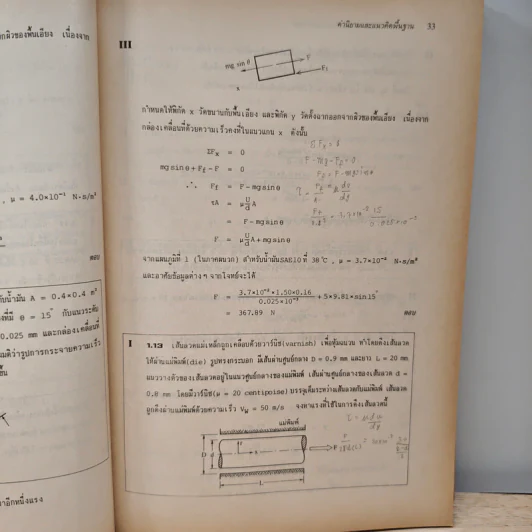 คำนิยามและแนวคิดพื้นฐาน 33
III
mg sin θ
F
Ff
x
กำหนดให้พิกัด x วัดขนานกับพื้นเอียง และพิกัด y วัดตั้งฉากออกจากผิวของพื้นเอียง เนื่องจาก
กล่องเคลื่อนที่ด้วยความเร็วคงที่ในแนวแกน x ดังนั้น
ΣFx = 0
mg sin θ + Ff - F = 0
∴ Ff = F - mg sin θ
τA = μ U/d A
= F - mg sin θ
F = μ U/d A + mg sin θ
จากแผนภูมิที่ 1 (ในภาคผนวก) สำหรับน้ำมันSAE10ที่ 38 °C , μ = 3.7×10⁻² N·s/m²
และอาศัยข้อมูลต่าง ๆ จากโจทย์จะได้
F = 3.7×10⁻²×1.50×0.16 / 0.025×10⁻³ + 5×9.81×sin15°
= 367.89 N ตอบ
I 1.13 เส้นลวดแม่เหล็กถูกเคลือบด้วยวาร์นิช(varnish) เพื่อหุ้มฉนวน ทำโดยดึงเส้นลวด
ให้ผ่านแม่พิมพ์(die) รูปทรงกระบอก มีเส้นผ่านศูนย์กลาง D = 0.9 mm และยาว L = 20 mm
แนววางตัวของเส้นลวดอยู่ในแนวศูนย์กลางของแม่พิมพ์ เส้นผ่านศูนย์กลางของเส้นลวด d =
0.8 mm โดยมีวาร์นิช(μ = 20 centipoise) บรรจุเต็มระหว่างเส้นลวดกับแม่พิมพ์ เส้นลวด
ถูกดึงผ่านแม่พิมพ์ด้วยความเร็ว Vw = 50 m/s จงหาแรงที่ใช้ในการดึงเส้นลวดนี้
แม่พิมพ์
D d r x F
L
, μ = 4.0×10⁻² N·s/m²
ตอบ
A = 0.4×0.4 m²
θ = 15° กับแนวระดับ
0.025 mm และกล่องเคลื่อนที่
อีกหนึ่งแรง